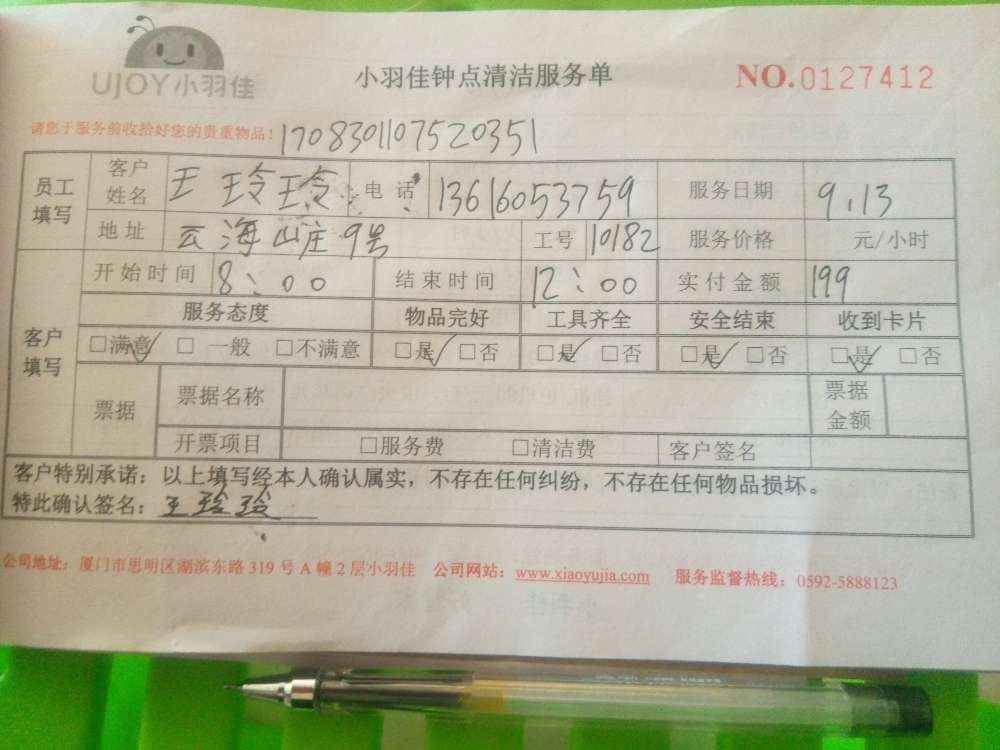 UJOY小羽佳
小羽佳钟点清洁服务单
NO.0127412
请您于服务前收拾好您的贵重物品！1708301107520351
员工填写 客户姓名 王玲玲 电话 13616053759 服务日期 9.13
地址 云海山庄9号 工号 10182 服务价格 元/小时
客户填写 开始时间 8:00 结束时间 12:00 实付金额 199
服务态度 物品完好 工具齐全 安全结束 收到卡片
□满意✓ □一般 □不满意 □是✓ □否 □是✓ □否 □是✓ □否 □是✓ □否
票据 票据名称 票据金额
开票项目 □服务费 □清洁费 客户签名
客户特别承诺：以上填写经本人确认属实，不存在任何纠纷，不存在任何物品损坏。
特此确认签名：王玲玲
公司地址：厦门市思明区湖滨东路319号A幢2层小羽佳 公司网站：www.xiaoyujia.com 服务监督热线：0592-5888123